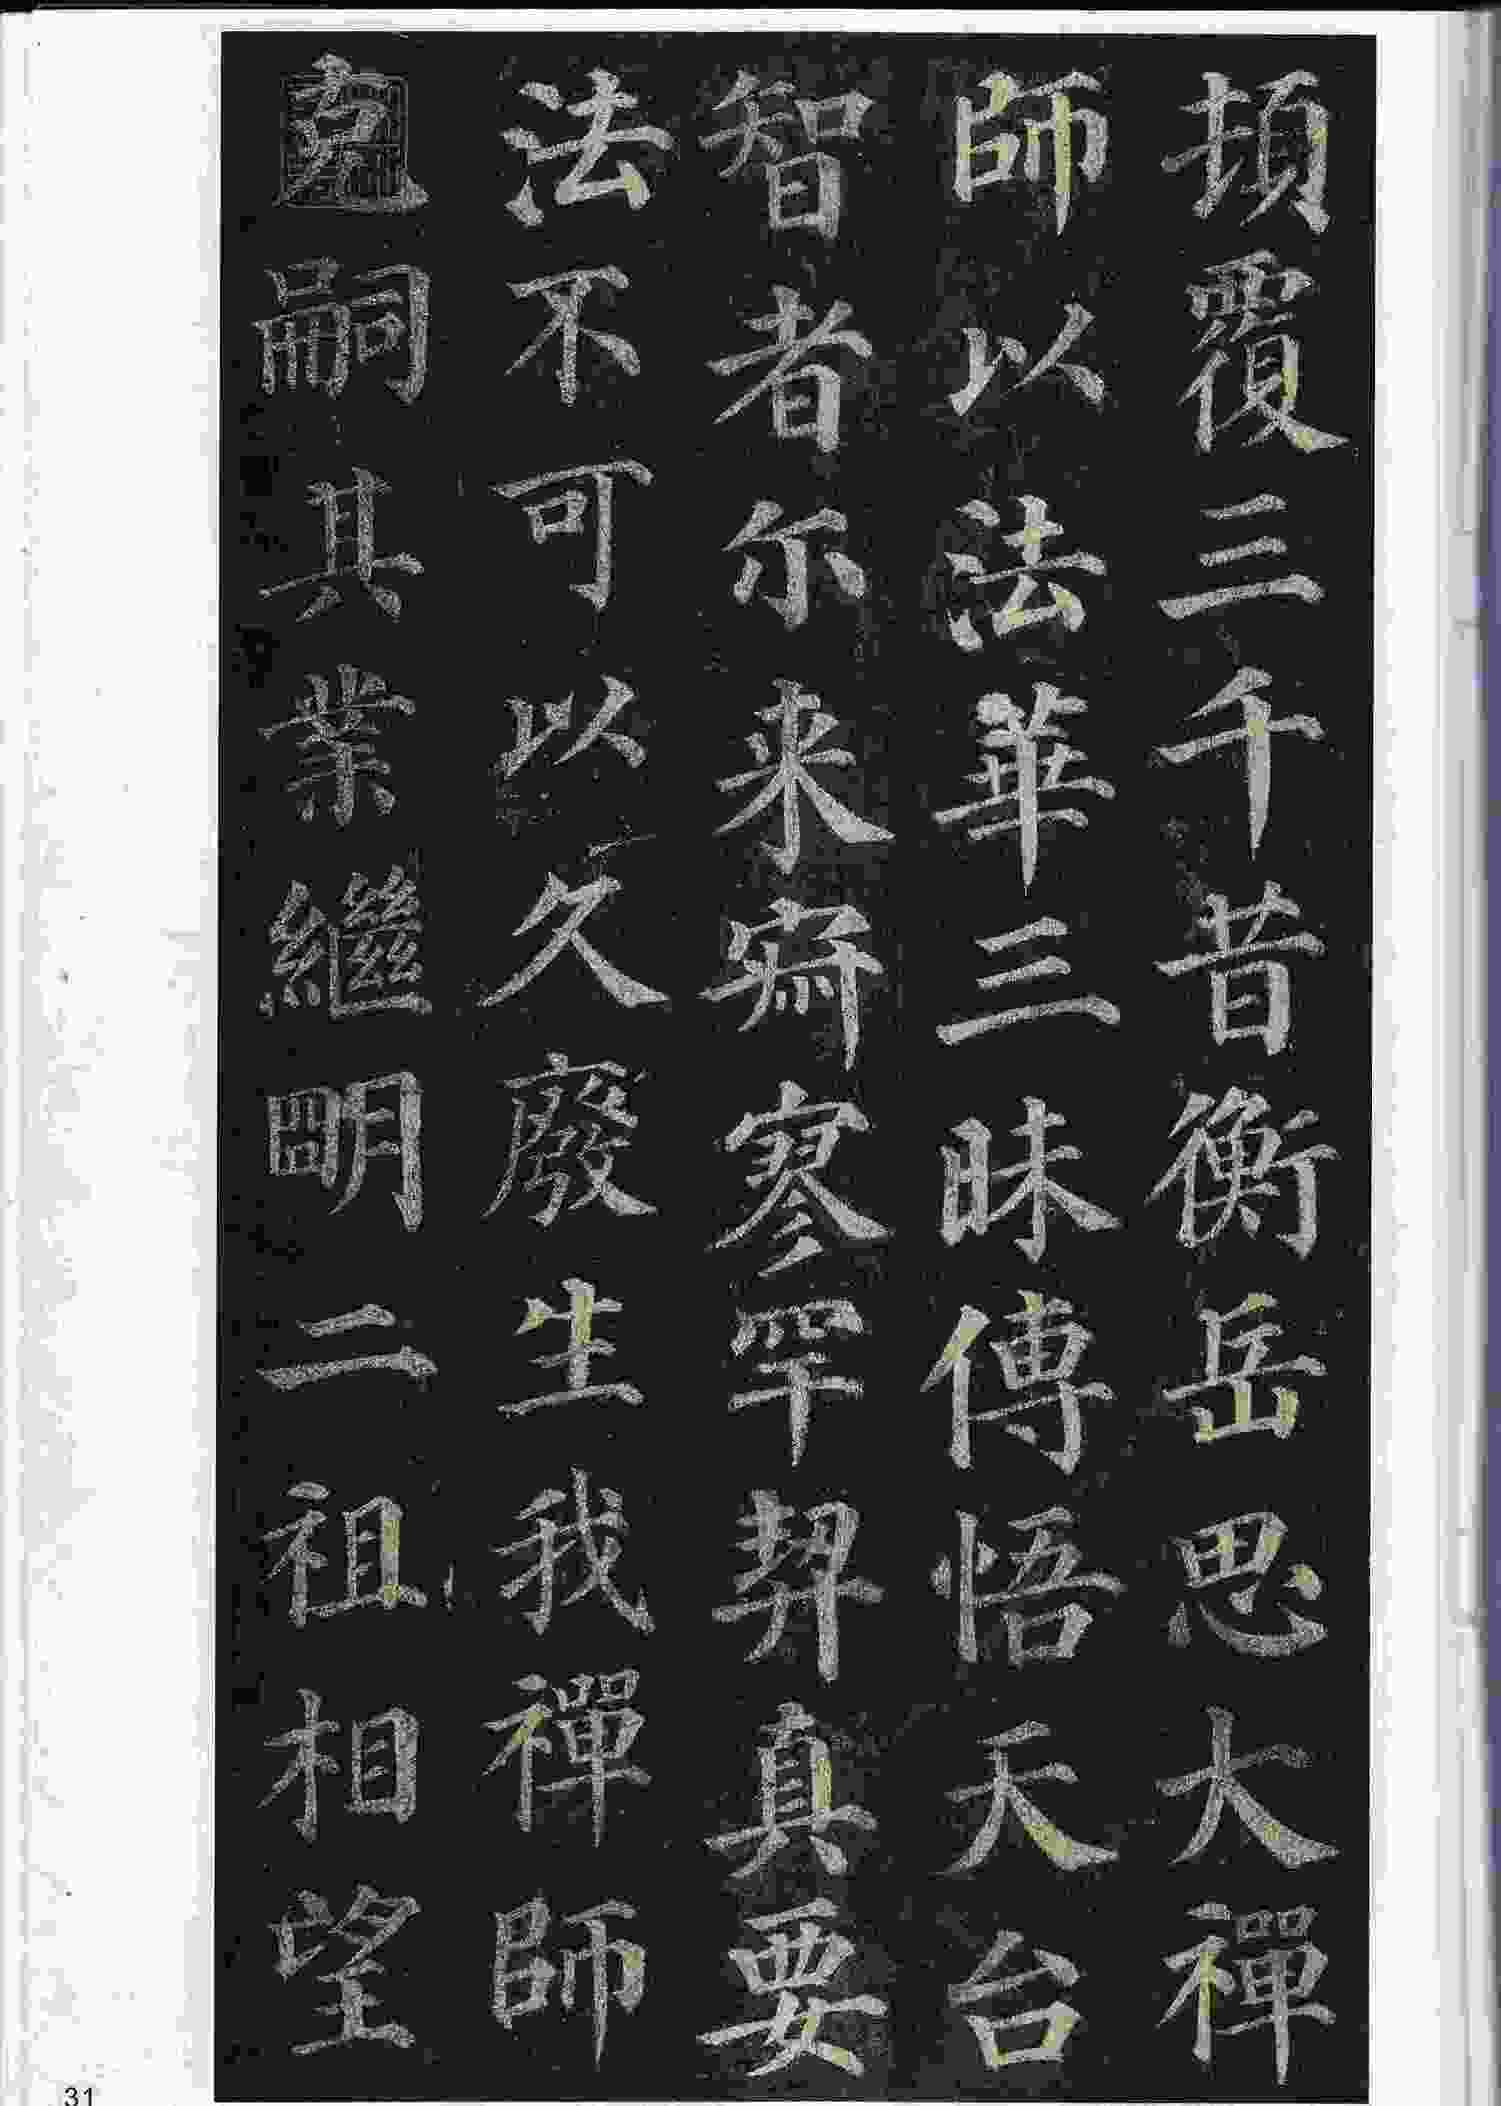 頓覆三千昔衡岳思大禪
師以法華三昧傳悟天台
智者尓来寂寥罕契真要
法不可以久廢生我禪師
克嗣其業繼明二祖相望
31